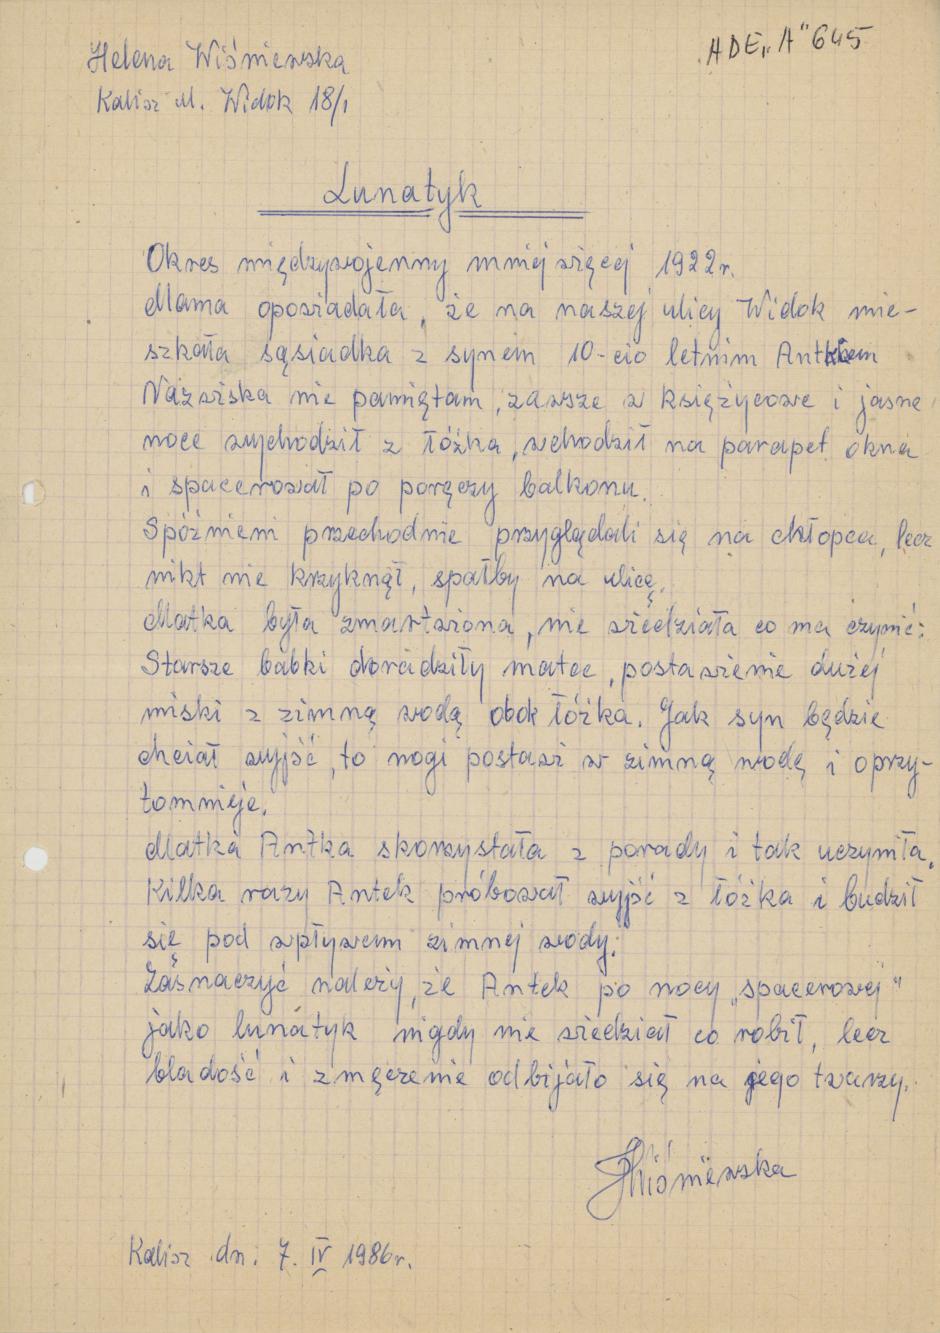 ADE„A" 645
Helena Wiśniewska
Kalisz ul. Widok 18/1
Lunatyk
Okres międzywojenny mniej więcej 1922r.
Mama opowiadała, że na naszej ulicy Widok mie-
szkała sąsiadka z synem 10-cio letnim Antkiem
Nazwiska nie pamiętam, zawsze w księżycowe i jasne
noce wychodził z łóżka, wchodził na parapet okna
i spacerował po poręczy balkonu.
Spóźnieni przechodnie przyglądali się na chłopca, lecz
nikt nie krzyknął, spałby na ulicę.
Matka była zmartwiona, nie wiedziała co ma czynić:
Starsze babki doradziły matce, postawienie dużej
miski z zimną wodą obok łóżka. Jak syn będzie
chciał wyjść, to nogi postawi w zimną wodę i oprzy-
tomnieje.
Matka Antka skorzystała z porady i tak uczyniła.
Kilka razy Antek próbował wyjść z łóżka i budził
się pod wpływem zimnej wody.
Zaśnaczyć należy, że Antek po nocy „spacerowej"
jako lunatyk nigdy nie wiedział co robił, lecz
bladość i zmęczenie odbijało się na jego twarzy.
HWiśniewska
Kalisz dn. 7. IV 1986r.